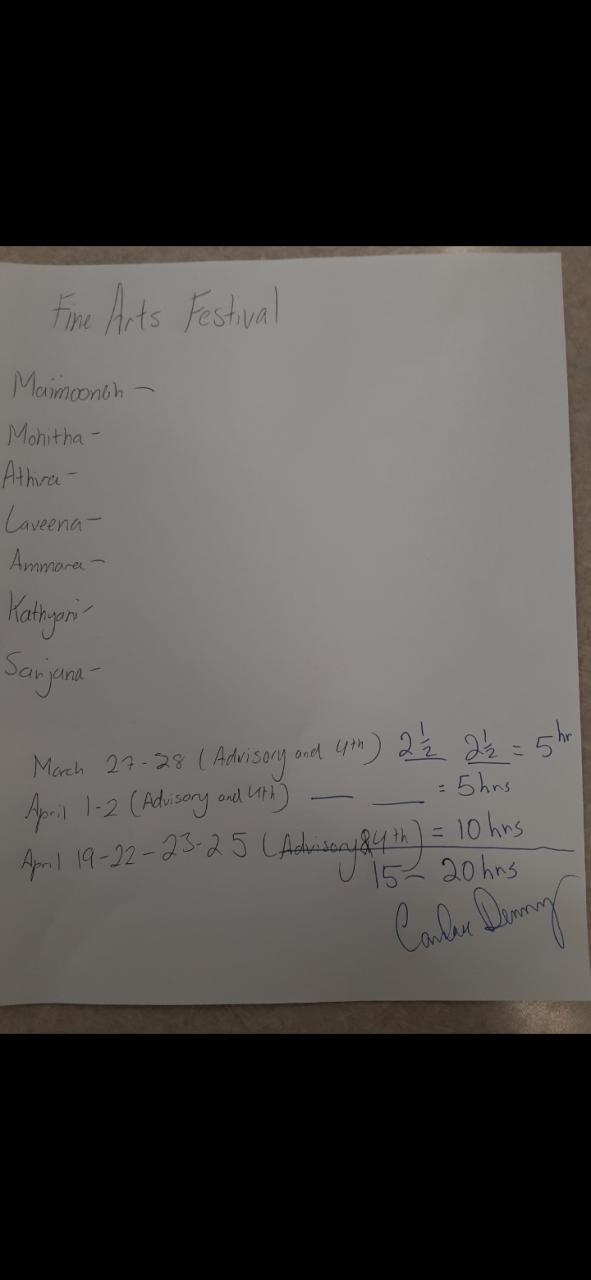 Fine Arts Festival
Maimoonah -
Mohitha -
Athira -
Laveena -
Ammara -
Kathyani -
Sanjana -
March 27-28 (Advisory and 4th) 2 1/2 2 1/2 = 5 hr
April 1-2 (Advisory and 4th) __ __ = 5 hrs
April 19-22-23-25 (Advisory & 4th) = 10 hrs
15 - 20 hrs